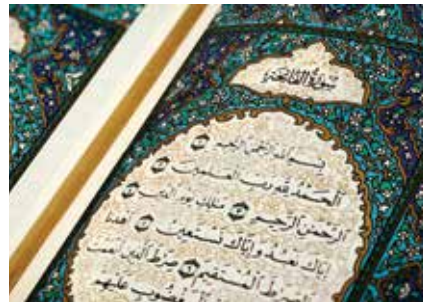 سورة الفاتحة
بسم الله الرحمن الرحيم
الحمد لله رب العلمين
الرحمن الرحيم ملك يوم الدين
إياك نعبد وإياك نستعين اهدنا
الصرط المستقيم صرط الذين أنعمت
المغضوب عليهم